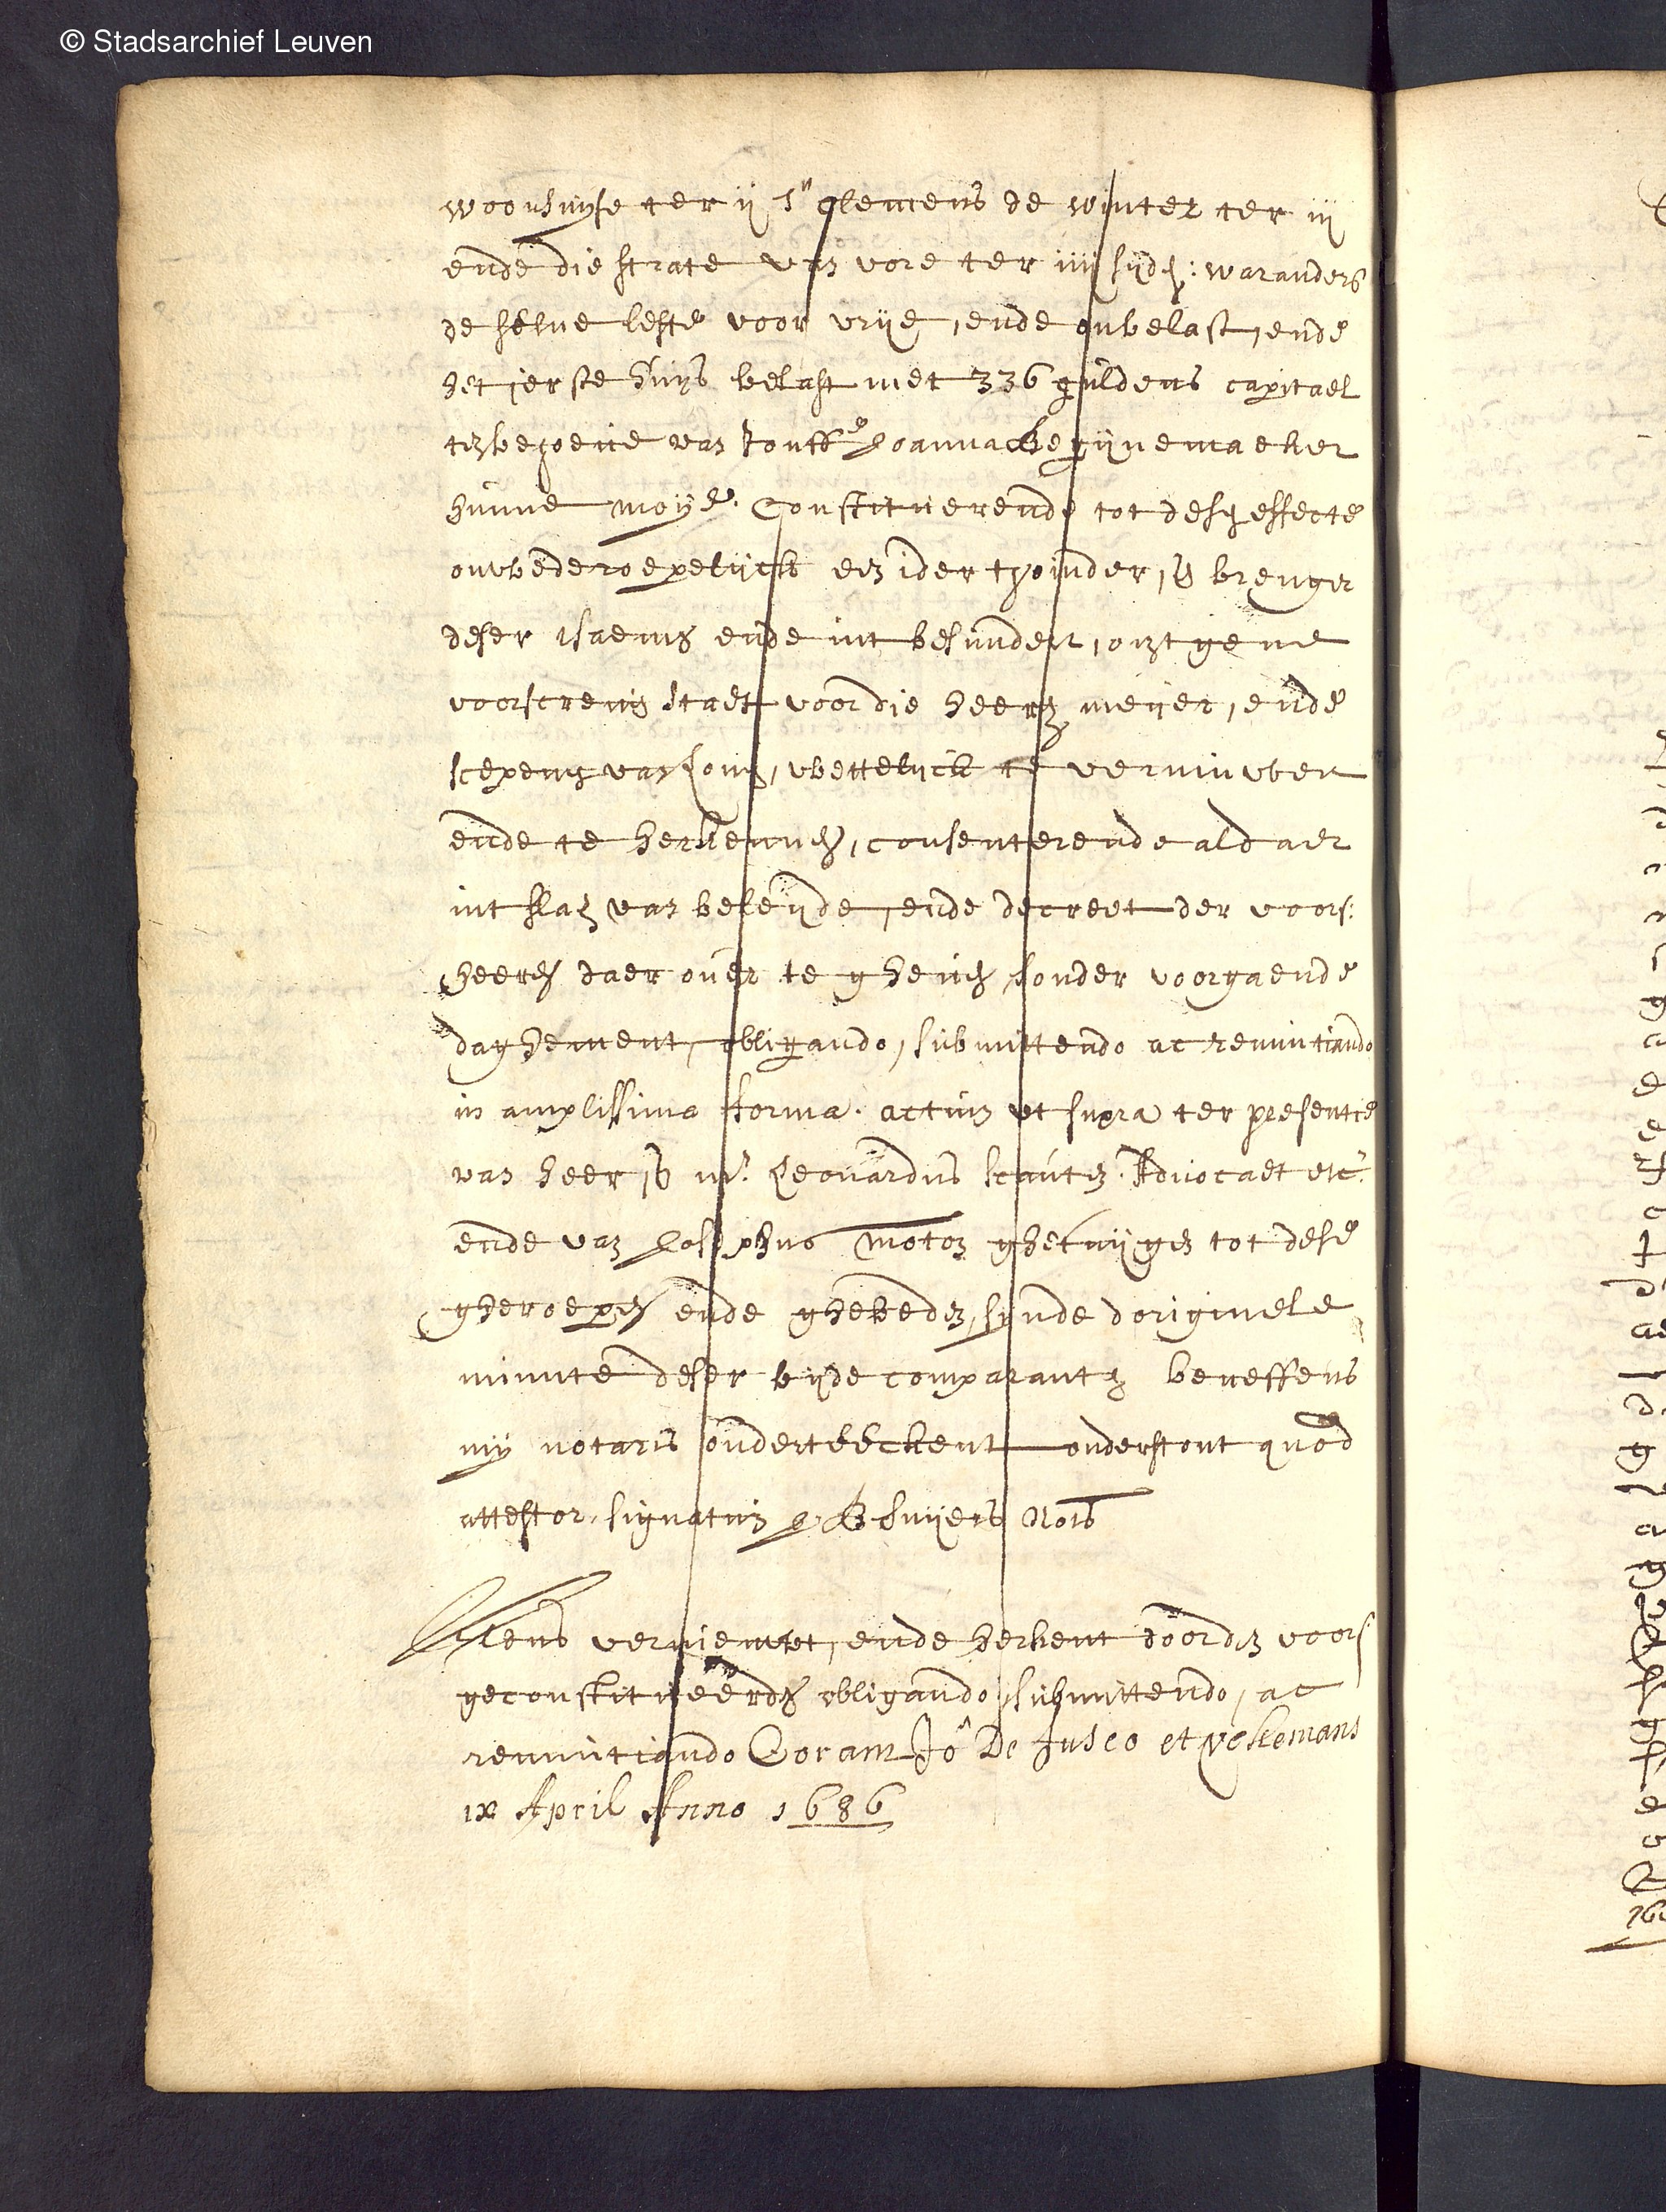 © Stadsarchief Leuven
woonhuyse ter ij Sr Clemens de winter ter iij
ende die strate van vore ter iiij syden: waranders
de selve leste voor vrije, ende onbelast, ende
het ierste huys belast met 336 guldens capitael
tegens Jouffe Joanna Begijnemaeker
hunne moye. Constituerende tot desen effecte
onwederoepelijck een ider thoinder, oft brenger
deser tsaemen ende int besunder, om tgene
voorscreven staet voor die heeren meijer, ende
scepenen van Loven, wettelijck te vernuwen
ende te herkennen, consenterende aldaer
int slaen van beleyde, ende decreet der voors:
heeren daer over te ghenen sonder voorgaende
daghement, obligando, submittendo ac renuntiando
in amplissima forma. actum ut supra ter presentie
van heer ende mr. Leonardus Advocaet etc.
ende van Josephus Moton ghetuygen tot dese
gheroepen ende ghebeden, synde doriginele
minute deser byde comparanten beneffens
my notaris onderteeckent onderstont quod
attestor, signatum Nots
Allens vernieuwt, ende herkent doorden voors
geconstitueerden obligando, submittendo, ac
renuntiando Coram Jor De Jusco et vekemans
ix April Anno 1686